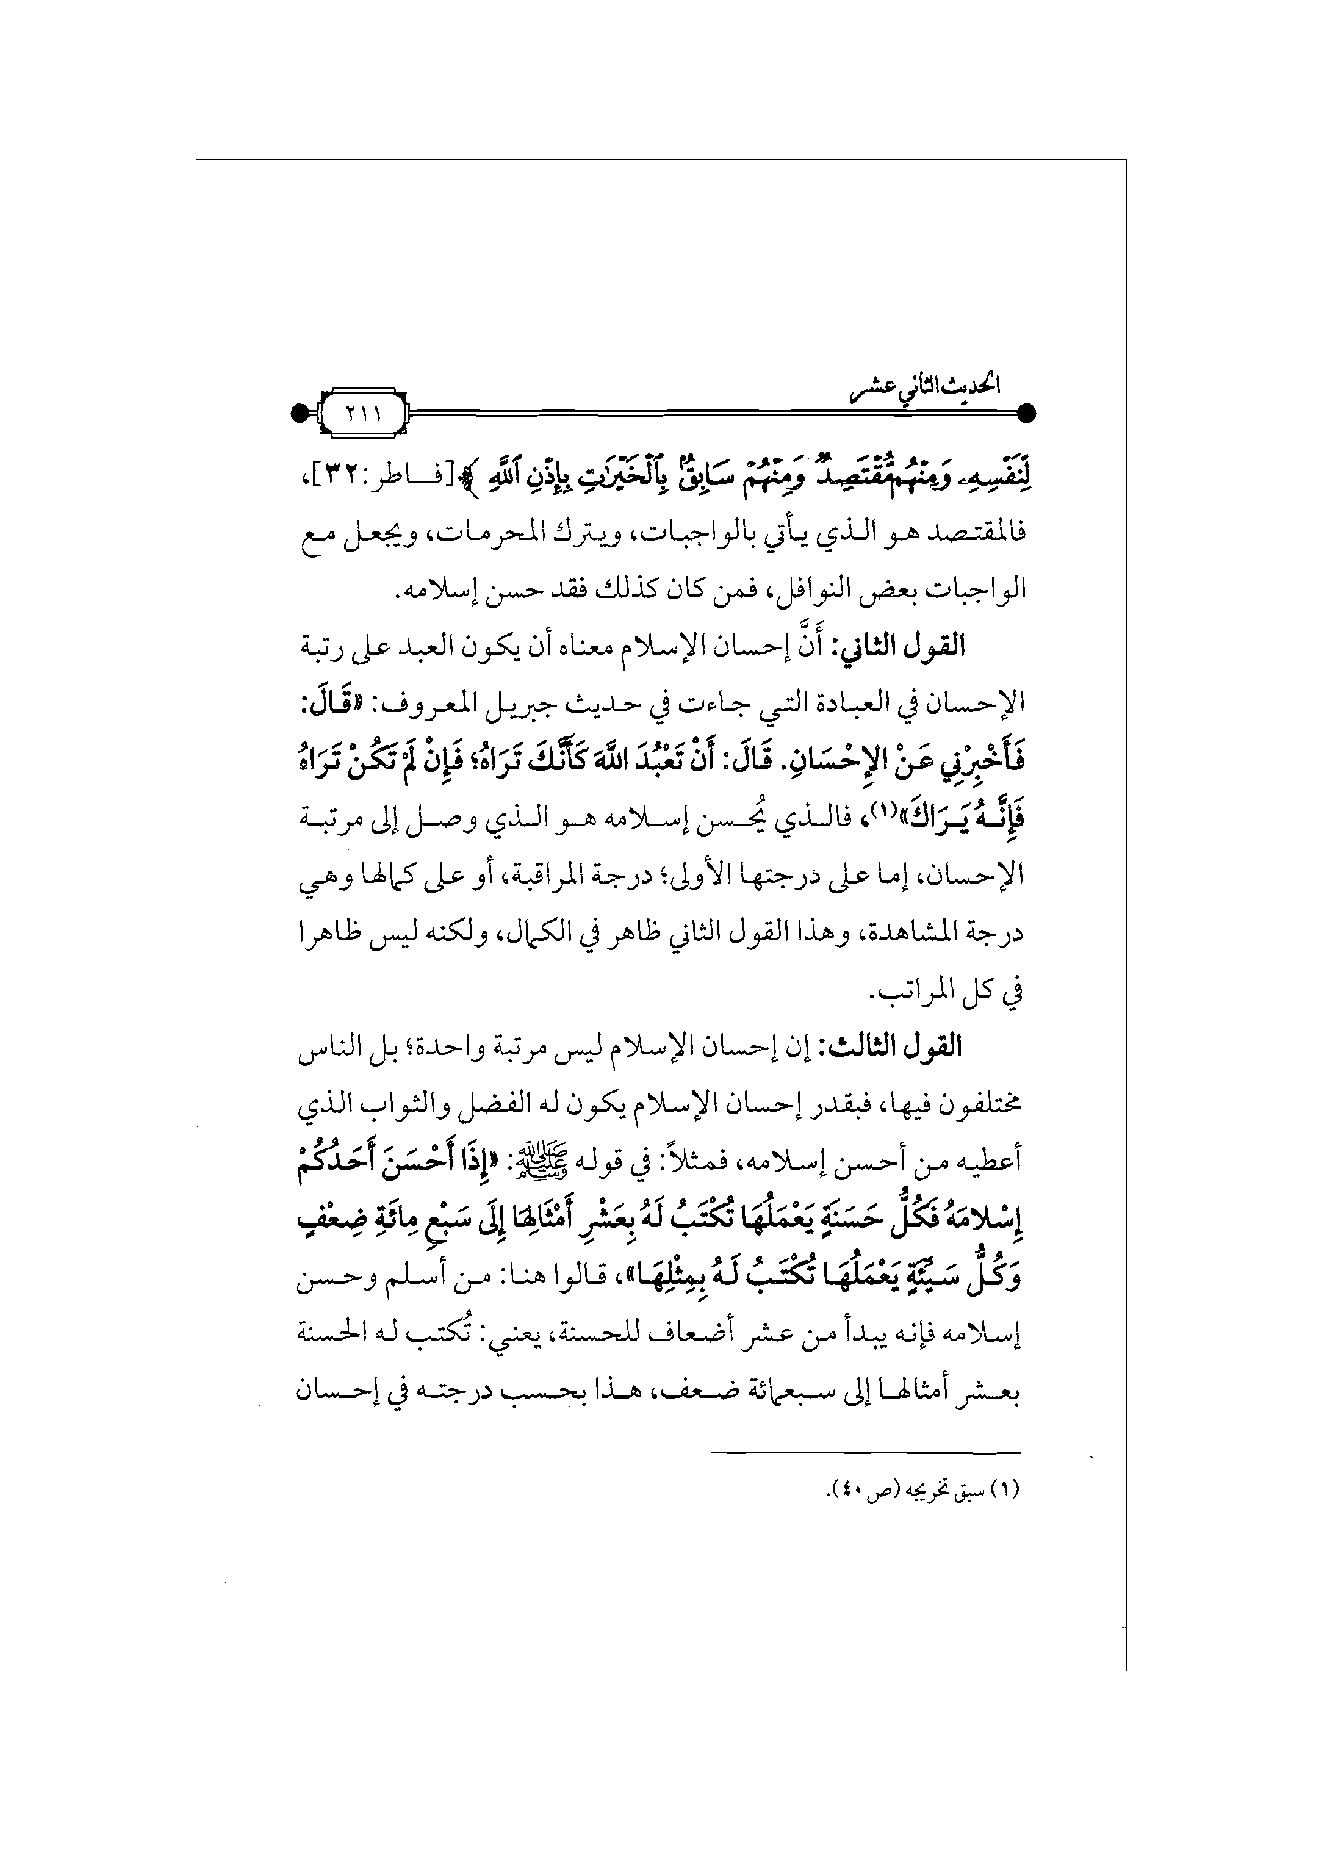 الحديث الثاني عشر
٢١١
لِّنَفْسِهِۦ وَمِنْهُم مُّقْتَصِدٌ وَمِنْهُمْ سَابِقٌۢ بِٱلْخَيْرَٰتِ بِإِذْنِ ٱللَّهِ ﴾ [فـاطر: ٣٢]،
فالمقتصد هو الذي يأتي بالواجبات، ويترك المحرمات، ويجعل مع
الواجبات بعض النوافل، فمن كان كذلك فقد حسن إسلامه.
القول الثاني: أَنَّ إحسان الإسلام معناه أن يكون العبد على رتبة
الإحسان في العبادة التي جاءت في حديث جبريل المعروف: «قَالَ:
فَأَخْبِرْنِي عَنْ الإِحْسَانِ. قَالَ: أَنْ تَعْبُدَ اللهَ كَأَنَّكَ تَرَاهُ؛ فَإِنْ لَمْ تَكُنْ تَرَاهُ
فَإِنَّهُ يَرَاكَ»(١)، فالذي يُحسن إسلامه هو الذي وصل إلى مرتبة
الإحسان، إما على درجتها الأولى؛ درجة المراقبة، أو على كمالها وهي
درجة المشاهدة، وهذا القول الثاني ظاهر في الكمال، ولكنه ليس ظاهرا
في كل المراتب.
القول الثالث: إن إحسان الإسلام ليس مرتبة واحدة؛ بل الناس
مختلفون فيها، فبقدر إحسان الإسلام يكون له الفضل والثواب الذي
أعطيه من أحسن إسلامه، فمثلاً: في قوله ﷺ: «إِذَا أَحْسَنَ أَحَدُكُمْ
إِسْلامَهُ فَكُلُّ حَسَنَةٍ يَعْمَلُهَا تُكْتَبُ لَهُ بِعَشْرِ أَمْثَالِهَا إِلَى سَبْعِ مِائَةِ ضِعْفٍ
وَكُلُّ سَيِّئَةٍ يَعْمَلُهَا تُكْتَبُ لَهُ بِمِثْلِهَا»، قالوا هنا: من أسلم وحسن
إسلامه فإنه يبدأ من عشر أضعاف للحسنة، يعني: تُكتب له الحسنة
بعشر أمثالها إلى سبعمائة ضعف، هذا بحسب درجته في إحسان
(١) سبق تخريجه (ص٤٠).